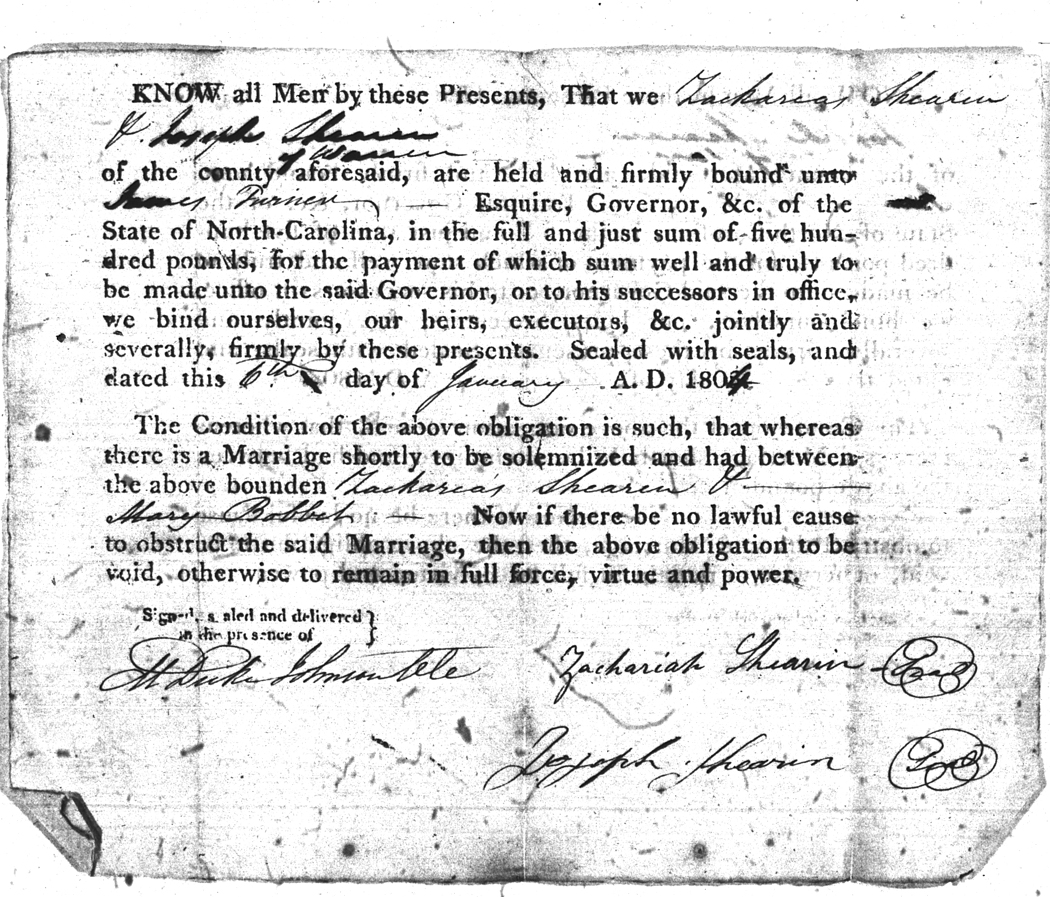 KNOW all Men by these Presents, That we Zackarias Shearin
& Joseph Shearin
of Warren
of the county aforesaid, are held and firmly bound unto
James Turner Esquire, Governor, &c. of the
State of North-Carolina, in the full and just sum of five hun-
dred pounds, for the payment of which sum well and truly to
be made unto the said Governor, or to his successors in office,
we bind ourselves, our heirs, executors, &c. jointly and
severally, firmly by these presents. Sealed with seals, and
dated this 6th day of January A. D. 1804
The Condition of the above obligation is such, that whereas
there is a Marriage shortly to be solemnized and had between
the above bounden Zackarias Shearin &
Mary Bobbit Now if there be no lawful cause
to obstruct the said Marriage, then the above obligation to be
void, otherwise to remain in full force, virtue and power.
Signed, sealed and delivered }
in the presence of }
M Duke Johnson Clk
Zachariah Shearin Seal
Joseph Shearin Seal